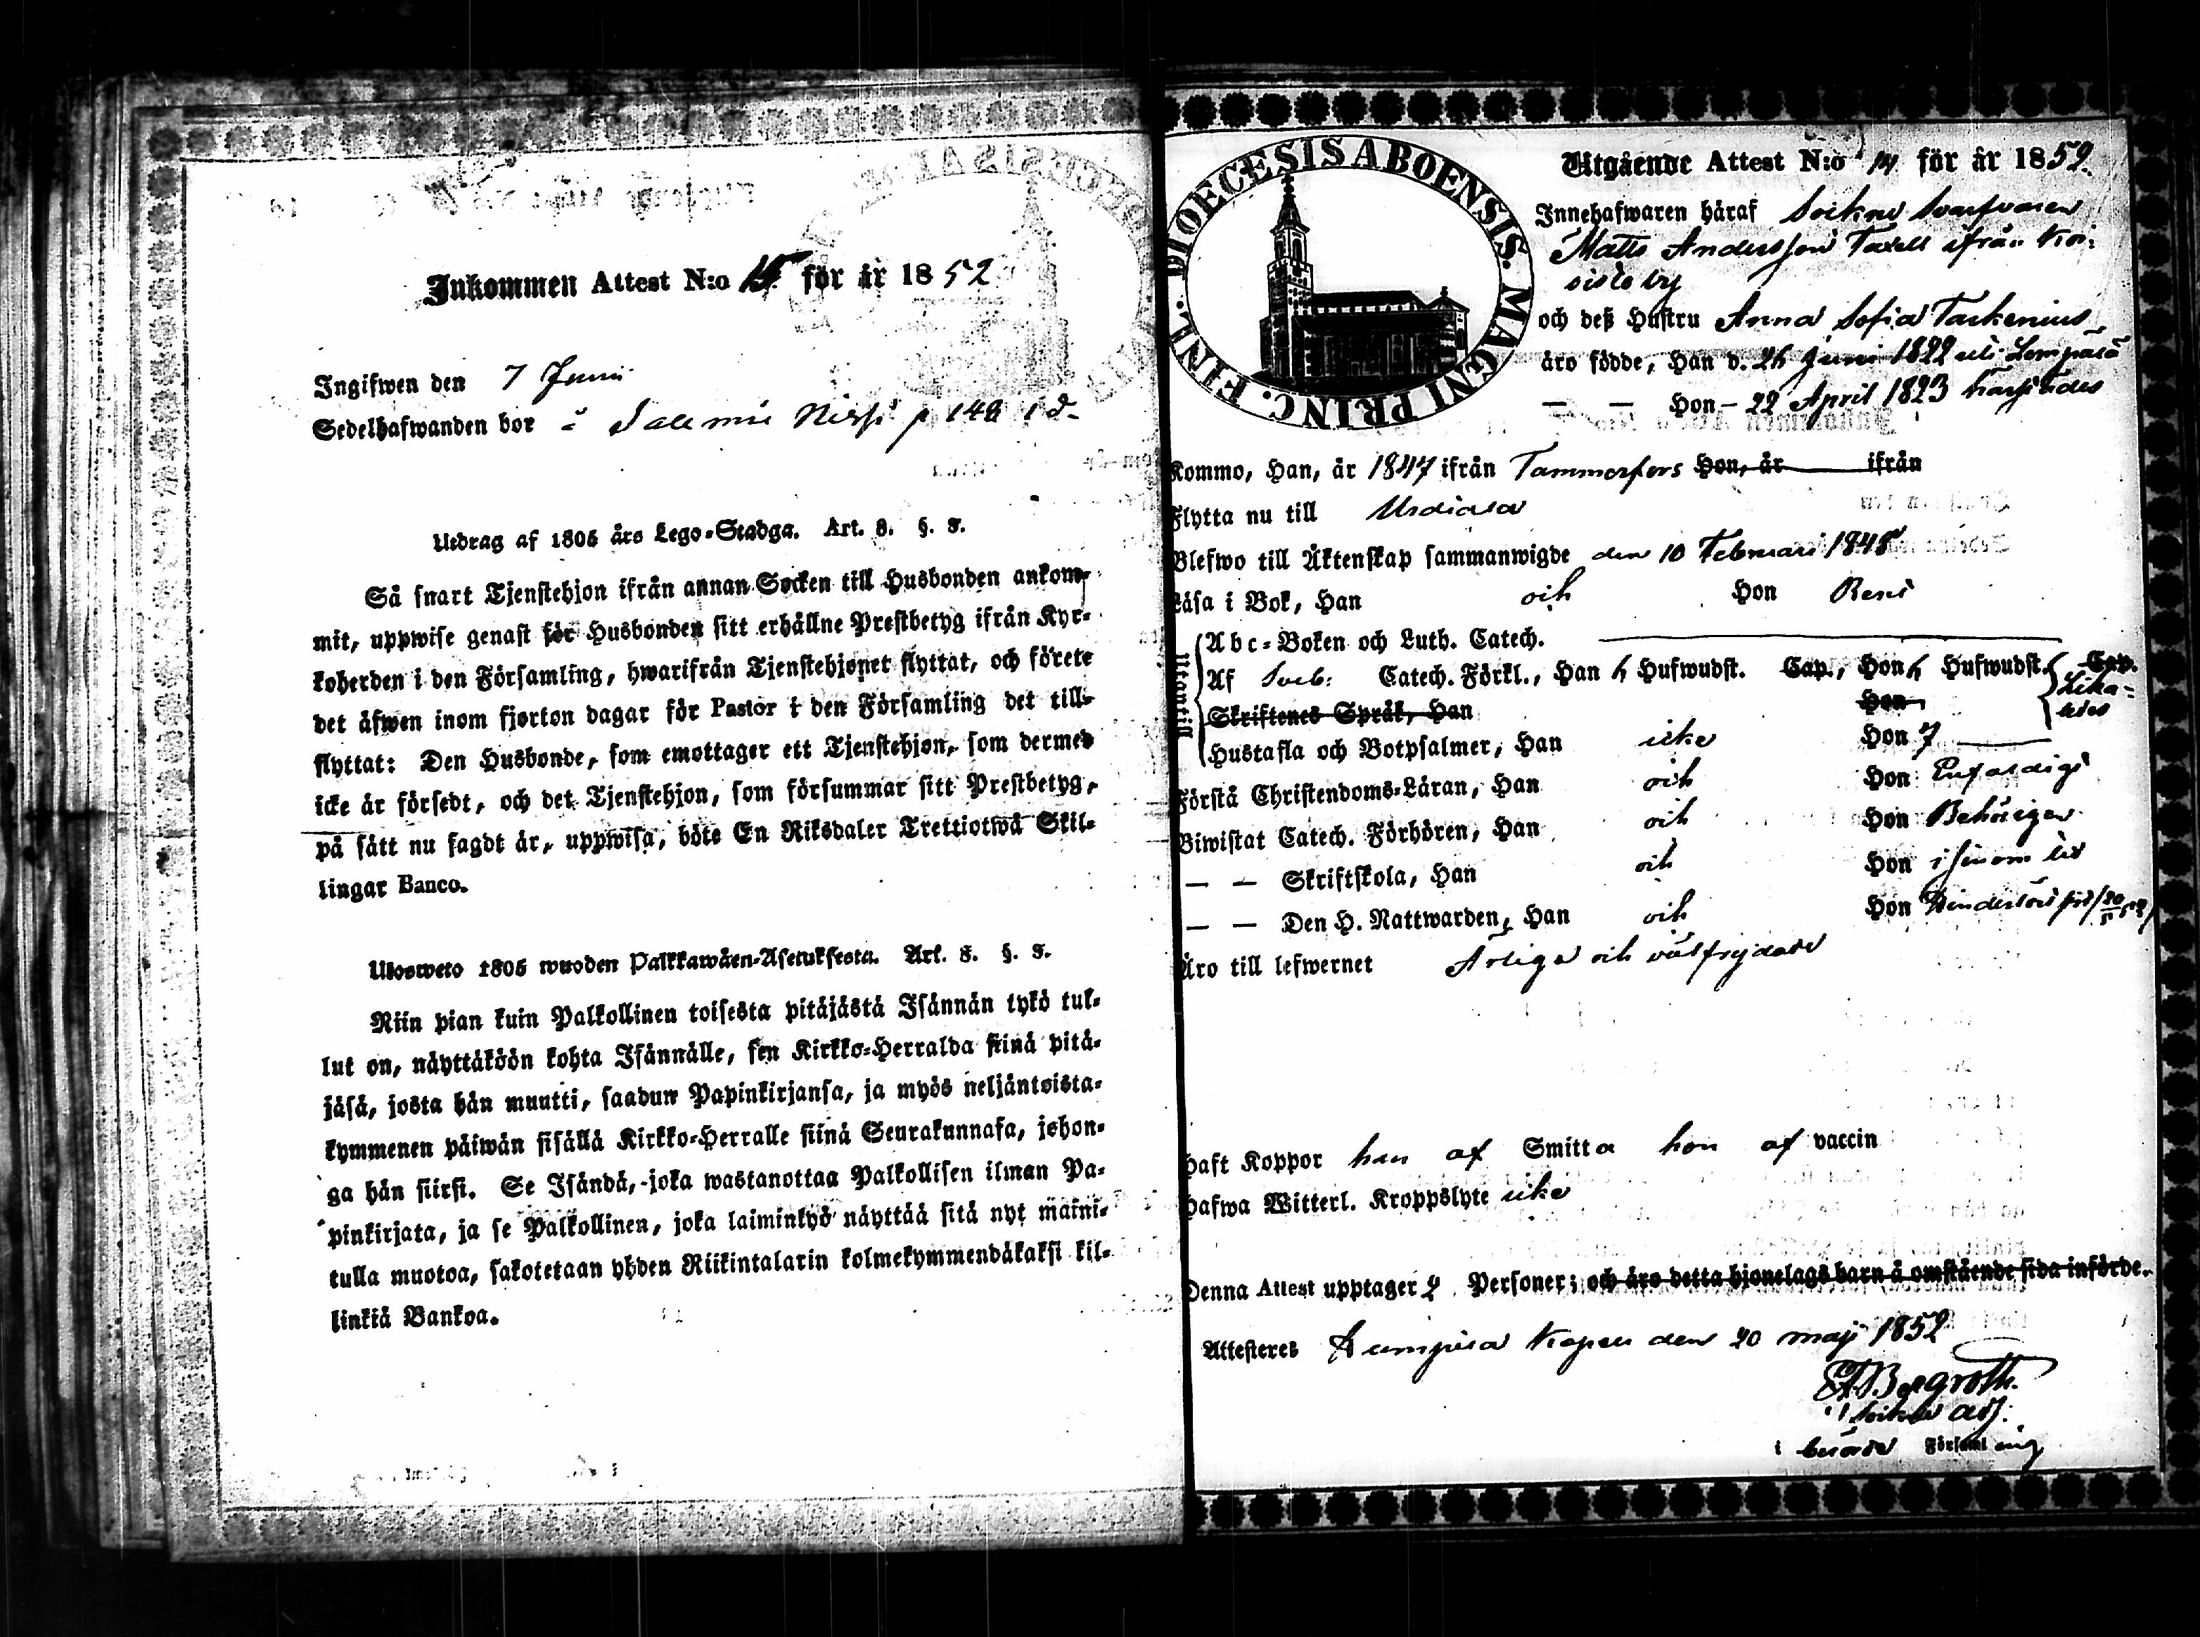 Inkommen Attest N:o 15 för år 1852
Ingifwen den 7 Junii
Sedelhafwanden bor
Utdrag af 1805 års Lego-Stadga. Art. 8. §. 8.
Så snart Tjenstehjon ifrån annan Socken till Husbonden ankom-
mit, uppwise genast för Husbonden sitt erhållne Prestbetyg ifrån Kyr-
koherden i den Församling, hwarifrån Tjenstehjonet flyttat, och förete
det äfwen inom fjorton dagar för Pastor i den Församling det till-
flyttat: Den Husbonde, som emottager ett Tjenstehjon, som dermed
icke är försedt, och det Tjenstehjon, som försummar sitt Prestbetyg,
på sätt nu sagdt är, uppwisa, böte En Riksdaler Trettiotwå Skil-
lingar Banco.
Ulosweto 1805 wuoden Palkkawäen-Asetuksesta. Art. 8. §. 8.
Niin pian kuin Palkollinen toisesta pitäjästä Isännän tykö tul-
lut on, näyttäköön kohta Isännälle, sen Kirkko-Herralda siinä pitä-
jäsä, josta hän muutti, saadun Papinkirjansa, ja myös neljäntoista-
kymmenen päiwän sisällä Kirkko-Herralle siinä Seurakunnasa, johon-
ga hän siirsi. Se Isändä, joka wastanottaa Palkollisen ilman Pa-
pinkirjata, ja se Palkollinen, joka laiminlyö näyttää sitä nyt maini-
tulla muotoa, sakotetaan yhden Riikintalarin kolmekymmendäkaksi kil-
linkiä Bankoa.
DIOECESIS ABOENSIS. MAGNI PRINC. FINL.
Utgående Attest N:o 14 för år 1852.
Innehafwaren häraf Sockne Swarfvaren
Matts Andersson Taxell ifrån Koi-
visto by
och deß Hustru Anna Sofia Tackenius
äro födde, Han d. 26 Juni 1822 uti Lempälä
— — Hon — 22 April 1823 härstädes
Kommo, Han, år 1847 ifrån Tammerfors Hon, år ifrån
Flytta nu till Urdiala
Blefwo till Äktenskap sammanwigde den 10 Februari 1848
Läsa i Bok, Han och Hon Rent
Utantill
Abc-Boken och Luth. Catech.
Af Sveb: Catech. Förkl., Han 5 Hufwudst. Cap., Hon 5 Hufwudst. Cap.
Lika-
ledes
Skriftenes Språk, Han Hon
Hustafla och Botpsalmer, Han icke Hon
Förstå Christendoms-Läran, Han och Hon Enfaldigt
Biwistat Catech. Förhören, Han och Hon Behörigen
— — Skriftskola, Han och Hon i sinom tid
— — Den H. Nattwarden, Han och Hon
Äro till lefwernet Ärliga och välfrejdade
Haft Koppor han af Smitta hon af vaccin
Hafwa Witterl. Kroppslyte icke
Denna Attest upptager 2 Personer; och äro detta hjonelags barn å omstående sida införde.
Attesteres Kumpila Kapell den 20 maji 1852
Bergroth.
Sockne Adj.
i berörde Församling